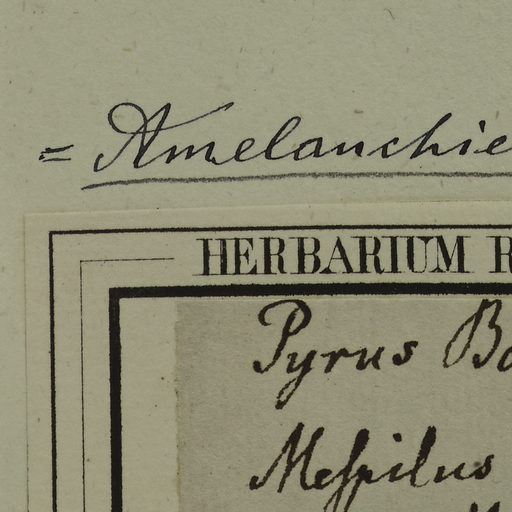 = Amelanchie
HERBARIUM R
Pyrus Bo
Meſpilus